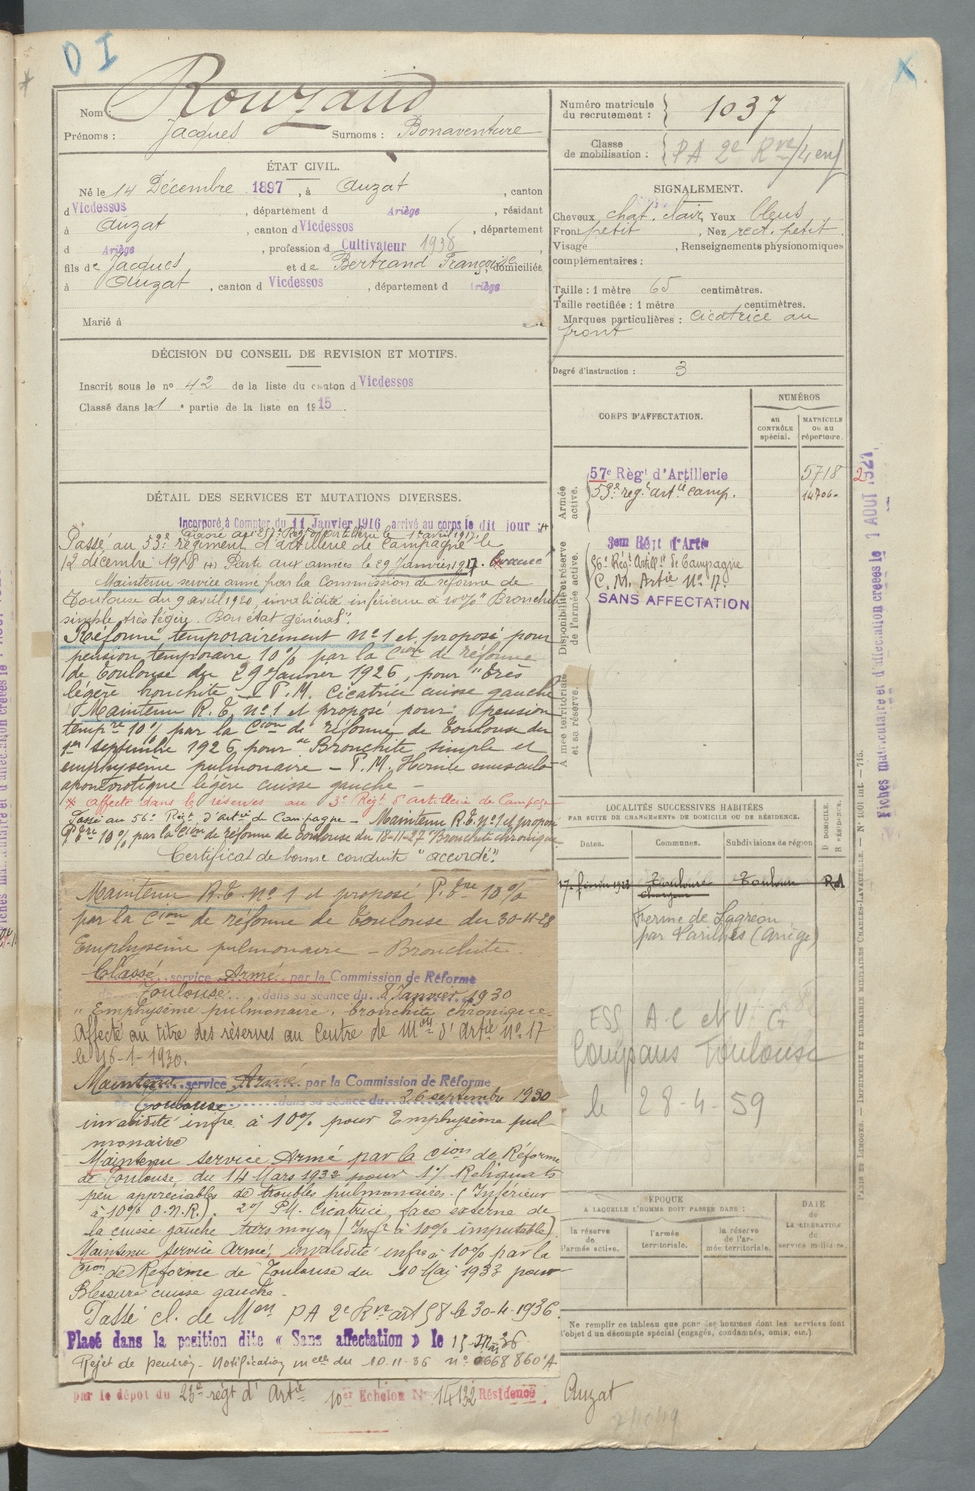 D I
X
Nom : Rouzaud
Prénoms : Jacques Surnoms : Bonaventure
Numéro matricule du recrutement : 1037
Classe de mobilisation : PA 2e Rve/4 enf
ÉTAT CIVIL.
Né le 14 Décembre 1897, à Auzat, canton
d Vicdessos, département d Ariège, résidant
à Auzat, canton d Vicdessos, département
d Ariège, profession d Cultivateur 1938
fils de Jacques et de Bertrand Françoise, domiciliés
à Auzat, canton d Vicdessos, département d Ariège
Marié à
SIGNALEMENT.
Cheveux chat. clair, Yeux bleus
Front petit, Nez rect. petit.
Visage , Renseignements physionomiques
complémentaires :
Taille : 1 mètre 65 centimètres.
Taille rectifiée : 1 mètre centimètres.
Marques particulières : Cicatrice au
front
Degré d'instruction : 3
DÉCISION DU CONSEIL DE REVISION ET MOTIFS.
Inscrit sous le no 42 de la liste du canton d Vicdessos
Classé dans la 1e partie de la liste en 1915.
DÉTAIL DES SERVICES ET MUTATIONS DIVERSES.
Incorporé à Compter du 11 Janvier 1916 arrivé au corps le dit jour
Passé au 53e régiment d'artillerie de Campagne le
12 décembre 1918 (+) Parti aux armées le 29 Janvier 1917.
Maintenu service armé par la Commission de réforme de
Toulouse du 9 avril 1920, invalidité inférieure à 10% "Bronchite
simple très légère. Bon état général".
Réformé temporairement No 1 et proposé pour
pension temporaire 10% par la Cion de réforme
de Toulouse du 29 Janvier 1926, pour "très
légère bronchite - P.M. Cicatrice cuisse gauche
Maintenu R.T. no 1 et proposé pour pension
tempre 10% par la Cion de réforme de Toulouse du
1er septembre 1926 pour "Bronchite simple et
emphysème pulmonaire - P.M. Hernie musculo
aponévrotique légère cuisse gauche -
* affecté dans les réserves au 3e Régt d'artillerie de Campagne
Passé au 56e Régt d'Artie de Campagne - Maintenu R.T. no 1 et proposé
P. tre 10% par la Cion de réforme de Toulouse du 18-11-27 "Bronchite chronique
Certificat de bonne conduite "accordé".
Maintenu R.T. No 1 et proposé P. tre 10%
par la Cion de réforme de Toulouse du 30-11-28
Emphysème pulmonaire - Bronchite.
Classé service Armé par la Commission de Réforme
Toulouse dans sa séance du 8 Janvier 1930
"Emphysème pulmonaire, bronchite chronique
Affecté au titre des réserves au Centre de Mon d'Artie No 17
le 16-1-1930.
Maintenu service Armé par la Commission de Réforme
Toulouse dans sa séance du 26 septembre 1930
invalidité infre à 10% pour Emphysème pul
monaire
Maintenu service Armé par la Cion de Réforme
de Toulouse du 14 Mars 1932 pour 1°/ Reliquats
peu appréciables de troubles pulmonaires. (Inférieur
à 10% O.N.R.). 2°/ P.M. Cicatrice, face externe de
la cuisse gauche tiers moyen (Infr à 10% imputable)
Maintenu Service Armé, invalidité infre à 10% par la
Cion de Réforme de Toulouse du 10 Mai 1933 pour
Blessure cuisse gauche.
Passé cl. de Mon PA 2e Rve art 58 le 30-4-1936.
Placé dans la position dite « Sans affectation » le 15 Mai 36
Rejet de pension - Notification mlle du 10.11-36 no
par le dépôt du 23e régt d'Artie 10er Echelon No 14132 Résidence Auzat
CORPS D'AFFECTATION.
NUMÉROS
au CONTRÔLE spécial.
MATRICULE ou au répertoire.
Armée active.
57e Régt d'Artillerie 5718
53e régt artie camp. 14706
Disponibilité et réserve de l'armée active.
3em Régt d'Artie
56e Régt Artille de Campagne
C. M. Artie No 17
SANS AFFECTATION
Armée territoriale et sa réserve.
LOCALITÉS SUCCESSIVES HABITÉES
PAR SUITE DE CHANGEMENTS DE DOMICILE OU DE RÉSIDENCE.
Dates. Communes. Subdivisions de région D DOMICILE. R RÉSIDENCE.
Toulouse
Ferme de Lagreou
par Varilhes (Ariège)
Toulouse
le 28-4-59
ÉPOQUE
A LAQUELLE L'HOMME DOIT PASSER DANS :
la réserve de l'armée active.
l'armée territoriale.
la réserve de l'armée territoriale.
DATE de LA LIBÉRATION du service militaire.
Ne remplir ce tableau que pour les hommes dont les services font
l'objet d'un décompte spécial (engagés, condamnés, omis, etc.)
Fiches matriculaire et d'affectation créées le 1 AOUT 1921,
PARIS ET LIMOGES. — IMPRIMERIE ET LIBRAIRIE MILITAIRES CHARLES-LAVAUZELLE. — No 1001 int. — 715.